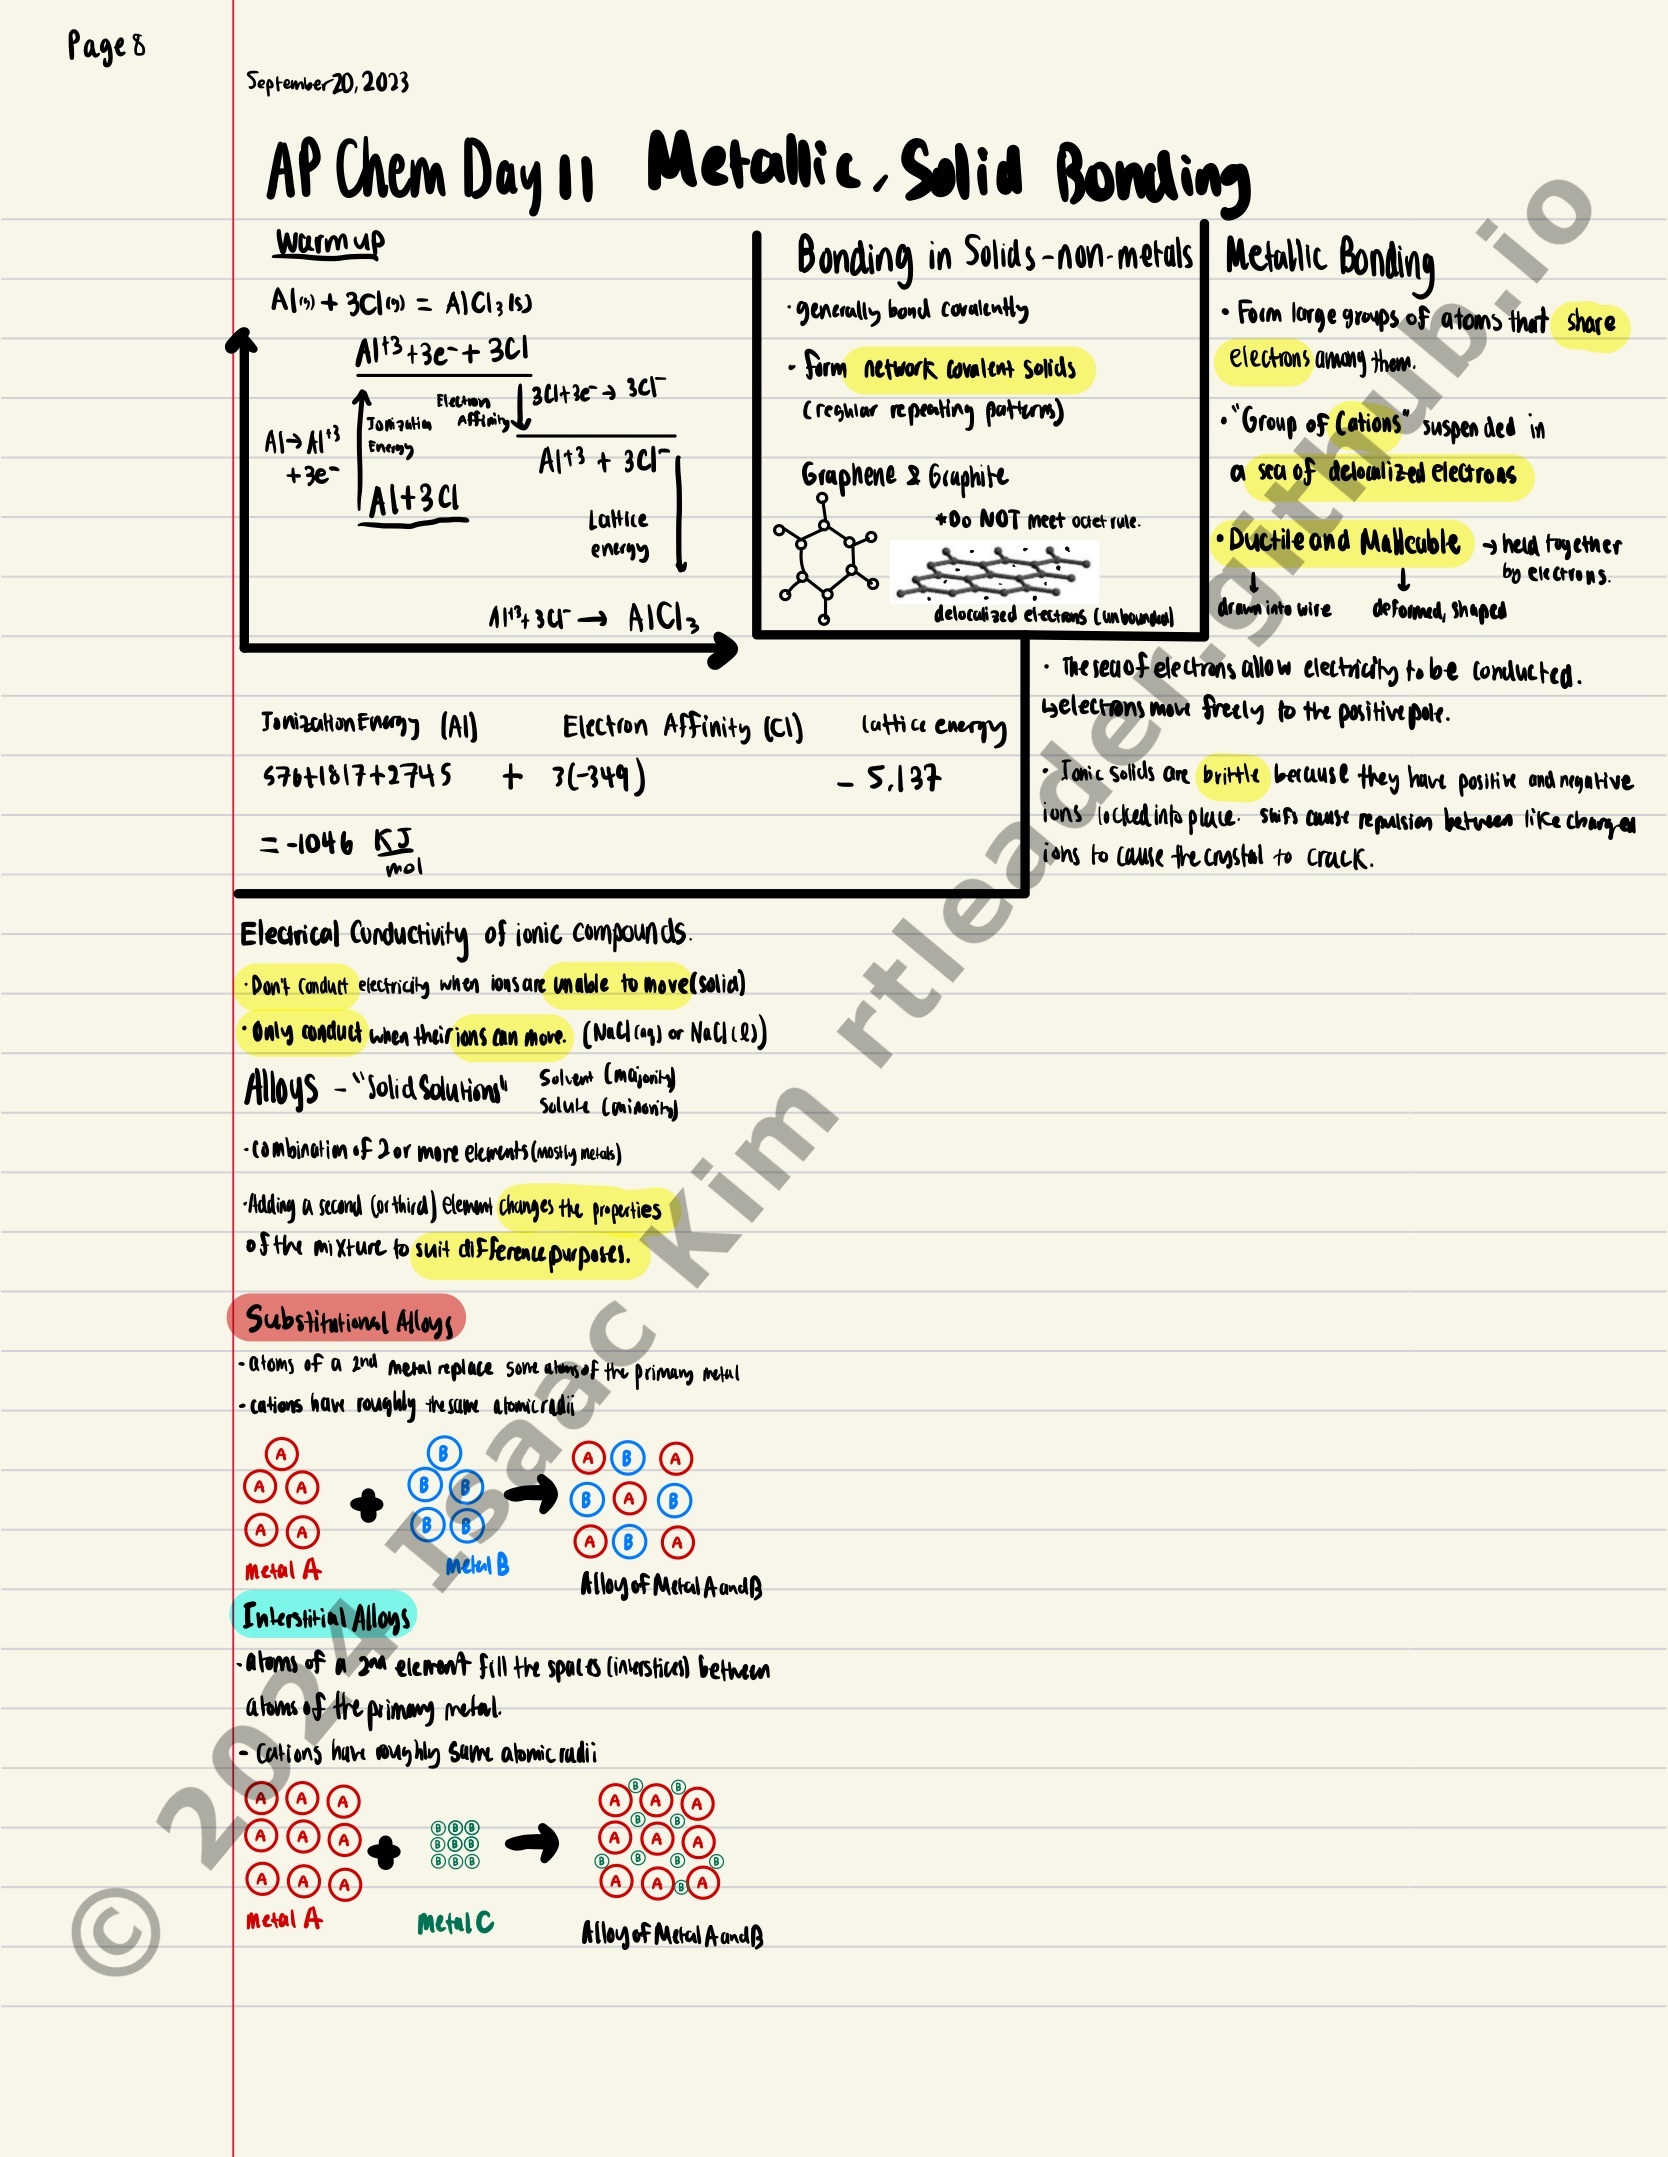 Page 8
September 20, 2023
AP Chem Day 11 Metallic, Solid Bonding
Warm up
Al(s) + 3Cl(g) = AlCl3(s)
Al+3 + 3e- + 3Cl
Electron Affinity
3Cl+3e- → 3Cl-
Ionization Energy
Al → Al+3 + 3e-
Al+3 + 3Cl-
Al+3Cl
Lattice energy
Al+3 + 3Cl- → AlCl3
Ionization Energy (Al) Electron Affinity (Cl) lattice energy
576+1817+2745 + 3(-349) - 5,137
= -1046 KJ
mol
Bonding in Solids - non-metals
· generally bond covalently
· form network covalent solids
(regular repeating patterns)
Graphene & Graphite
*Do NOT meet octet rule.
delocalized electrons (unbounded)
Metallic Bonding
· Form large groups of atoms that share
electrons among them.
· "Group of Cations" suspended in
a sea of delocalized electrons
· Ductile and Malleable → held together
by electrons.
drawn into wire deformed, shaped
· The sea of electrons allow electricity to be conducted.
↳ electrons move freely to the positive pole.
· Ionic solids are brittle because they have positive and negative
ions locked into place. Shifs cause repulsion between like charged
ions to cause the crystal to crack.
Electrical Conductivity of ionic compounds.
· Don't conduct electricity when ions are unable to move (solid)
· Only conduct when their ions can move. (NaCl(aq) or NaCl(l))
Alloys - "Solid Solutions" Solvent (majority)
Solute (minority)
· combination of 2 or more elements (mostly metals)
· Adding a second (or third) element changes the properties
of the mixture to suit difference purposes.
Substitutional Alloys
- atoms of a 2nd metal replace some atoms of the primary metal
- cations have roughly the same atomic radii
A B A B A
A A B B B A B
A A B B A B A
metal A metal B
Alloy of Metal A and B
Interstitial Alloys
- atoms of a 2nd element fill the spaces (interstices) between
atoms of the primary metal.
- Cations have roughly same atomic radii
B B
A A A A A A
B B B B B
A A A B B B A A A
B B B B B B B
A A A A A B A
metal A metal C Alloy of Metal A and B
© 2024 Isaac Kim rtleader.github.io